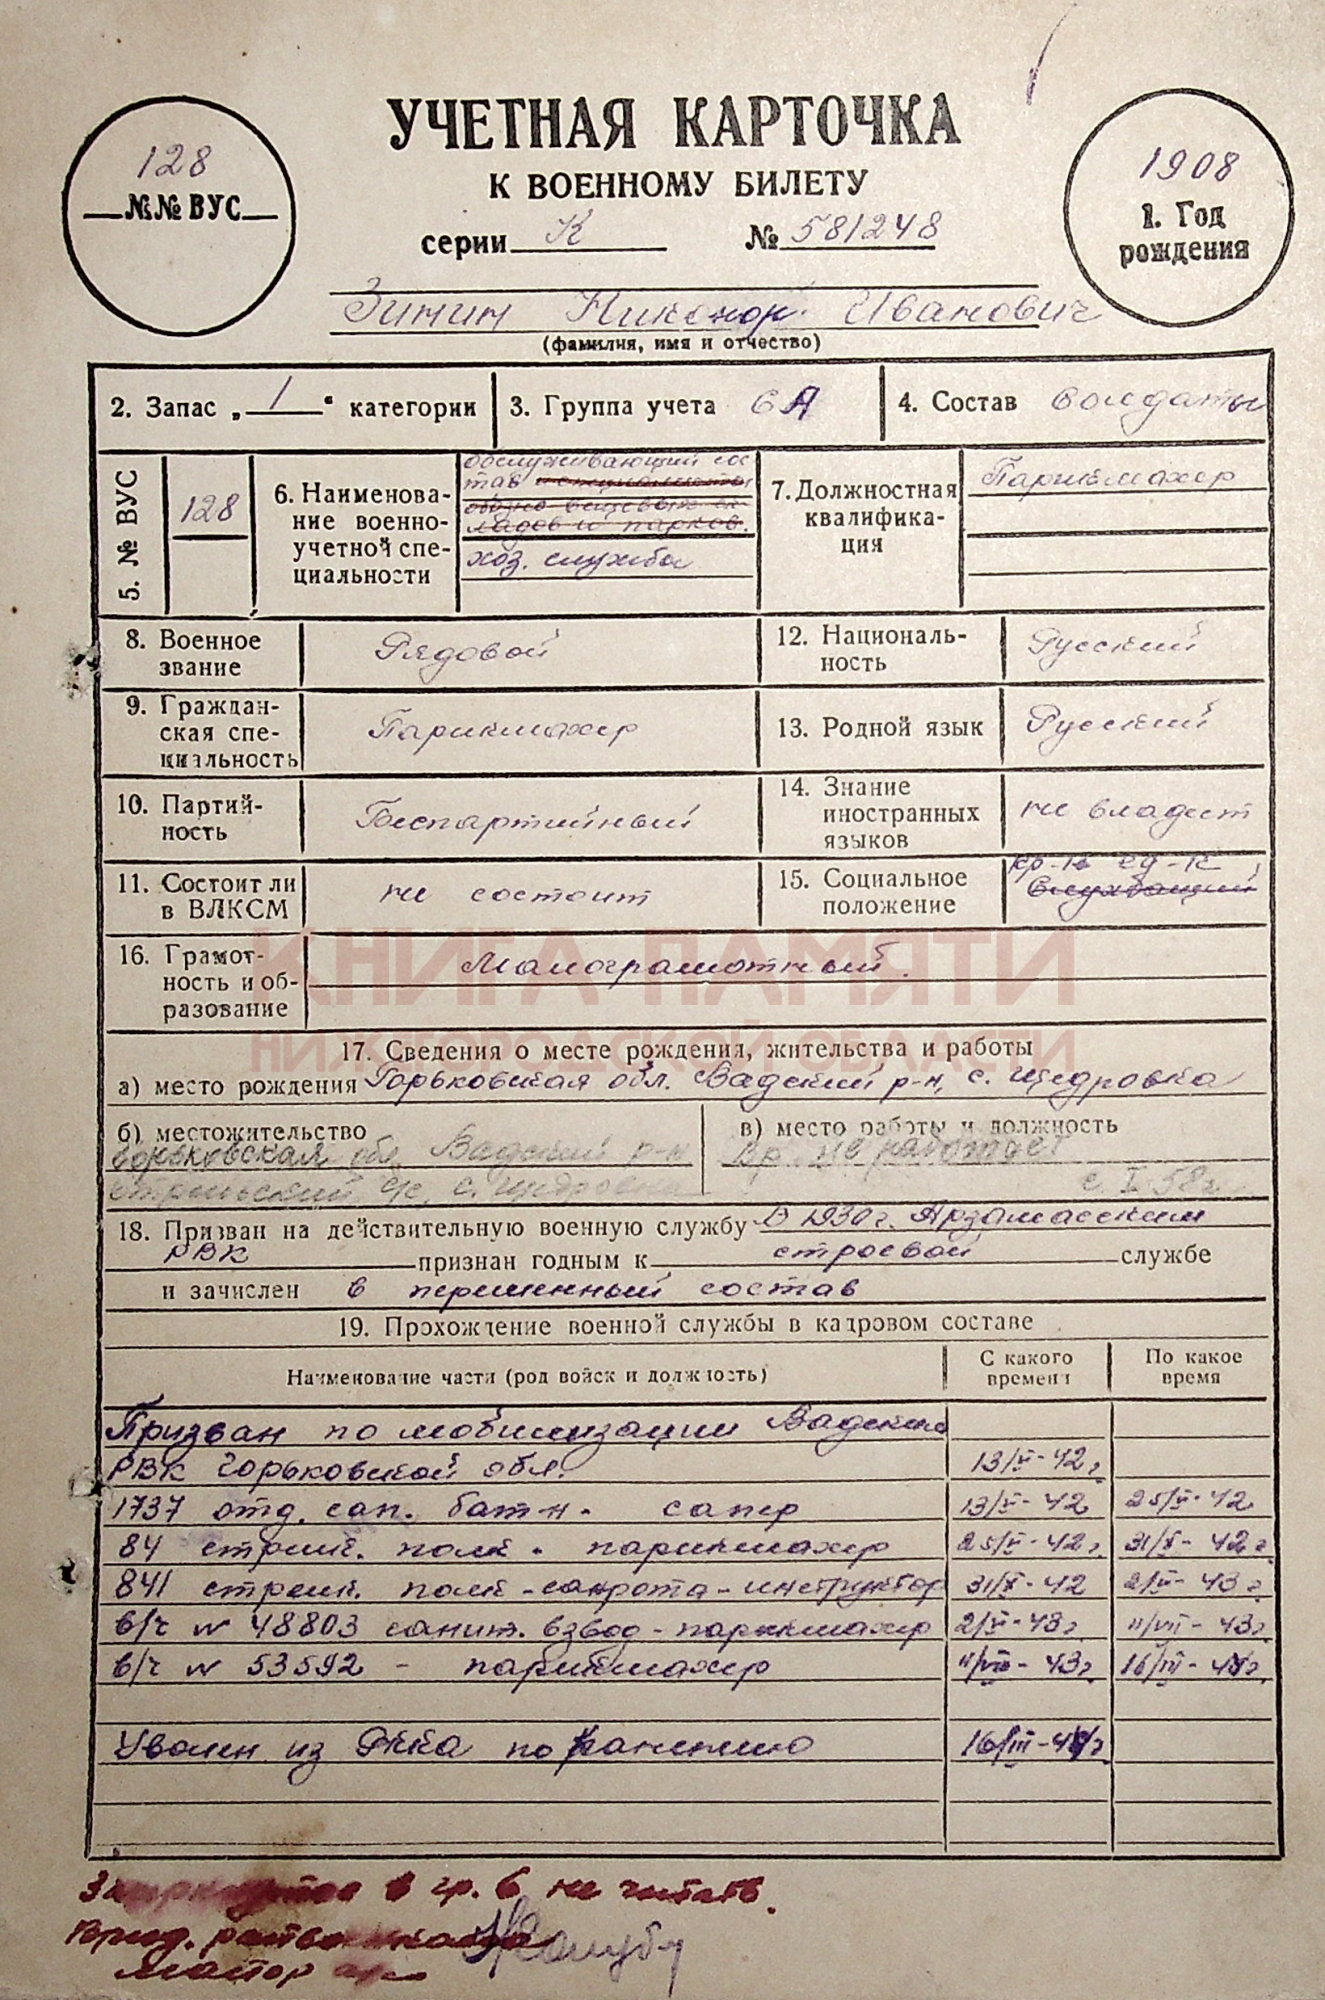 УЧЕТНАЯ КАРТОЧКА
К ВОЕННОМУ БИЛЕТУ
128
№№ ВУС
серии К № 581248
1908
1. Год
рождения
Зимин Никонор Иванович
(фамилия, имя и отчество)
2. Запас „1“ категории
3. Группа учета 6А
4. Состав солдаты
5. № ВУС
128
6. Наименова-
ние военно-
учетной спе-
циальности
обслуживающий сос
тав
хоз. служба
7. Должностная
квалифика-
ция
Парикмахер
8. Военное
звание
Рядовой
12. Националь-
ность
Русский
9. Граждан-
ская спе-
циальность
Парикмахер
13. Родной язык
Русский
10. Партий-
ность
Беспартийный
14. Знание
иностранных
языков
не владеет
11. Состоит ли
в ВЛКСМ
не состоит
15. Социальное
положение
служащий
16. Грамот-
ность и об-
разование
Малограмотный.
КНИГА ПАМЯТИ
НИЖЕГОРОДСКОЙ ОБЛАСТИ
17. Сведения о месте рождения, жительства и работы
а) место рождения Горьковская обл. Вадский р-н, с. Щедровка
б) местожительство
Горьковская обл. Вадский р-н
с. Щедровка
в) место работы и должность
Вр. не работает
с I-58г.
18. Призван на действительную военную службу В 1930г. Арзамасским
РВК признан годным к строевой службе
и зачислен в переменный состав
19. Прохождение военной службы в кадровом составе
Наименование части (род войск и должность)
С какого
времени
По какое
время
Призван по мобилизации Вадским
РВК Горьковской обл.
1737 отд. сап. бат-н - сапер
84 стрелк. полк - парикмахер 31/X- 42 г.
841 стрелк. полк - санрота - инструктор 31/X- 42
в/ч № 48803 санит. взвод - парикмахер
в/ч № 53592 - парикмахер
Уволен из РККА по ранению
в гр. 6 не читать.
майор